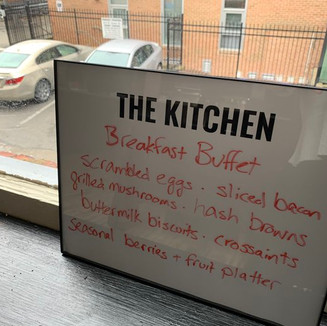 THE KITCHEN
Breakfast Buffet
scrambled eggs · sliced bacon
grilled mushrooms · hash browns
buttermilk biscuits · crossaints
seasonal berries + fruit platter